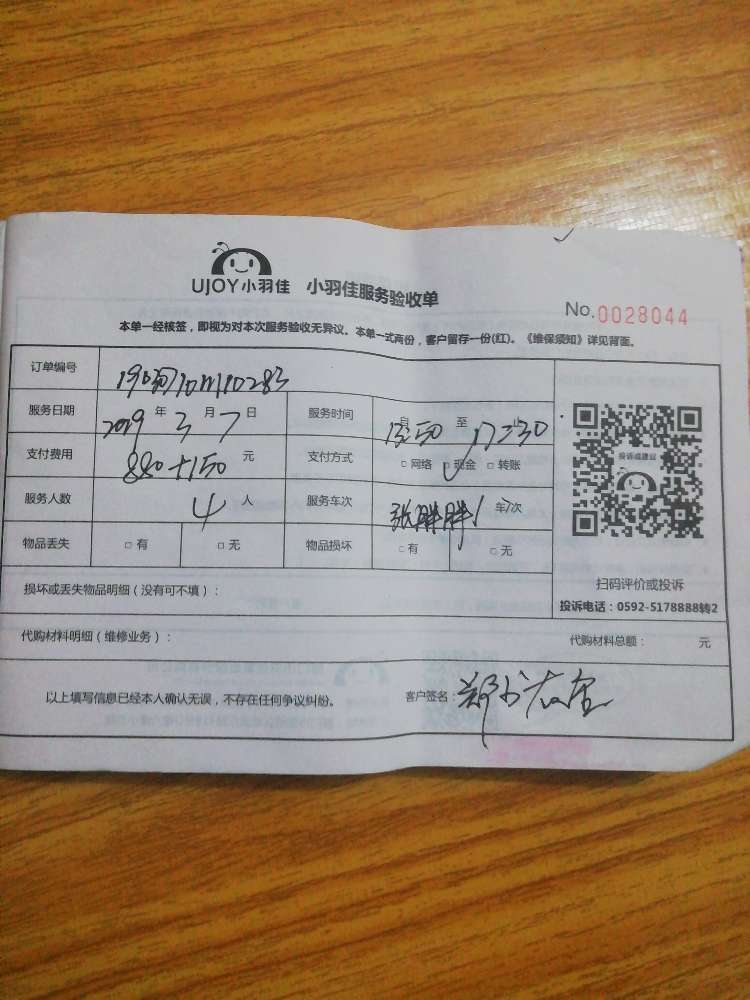 UJOY小羽佳 小羽佳服务验收单
No.0028044
本单一经核签，即视为对本次服务验收无异议。本单一式两份，客户留存一份(红)。《维保须知》详见背面。
订单编号
服务日期 2019 年 3 月 7 日 服务时间 自 13:50 至 17:30 止
支付费用 880+150 元 支付方式 □网络 □现金 □转账
服务人数 4 人 服务车次 张胖胖 1 车/次
物品丢失 □有 □无 物品损坏 □有 □无
投诉或建议
扫码评价或投诉
投诉电话：0592-5178888转2
损坏或丢失物品明细（没有可不填）：
代购材料明细（维修业务）： 代购材料总额： 元
以上填写信息已经本人确认无误，不存在任何争议纠纷。 客户签名：